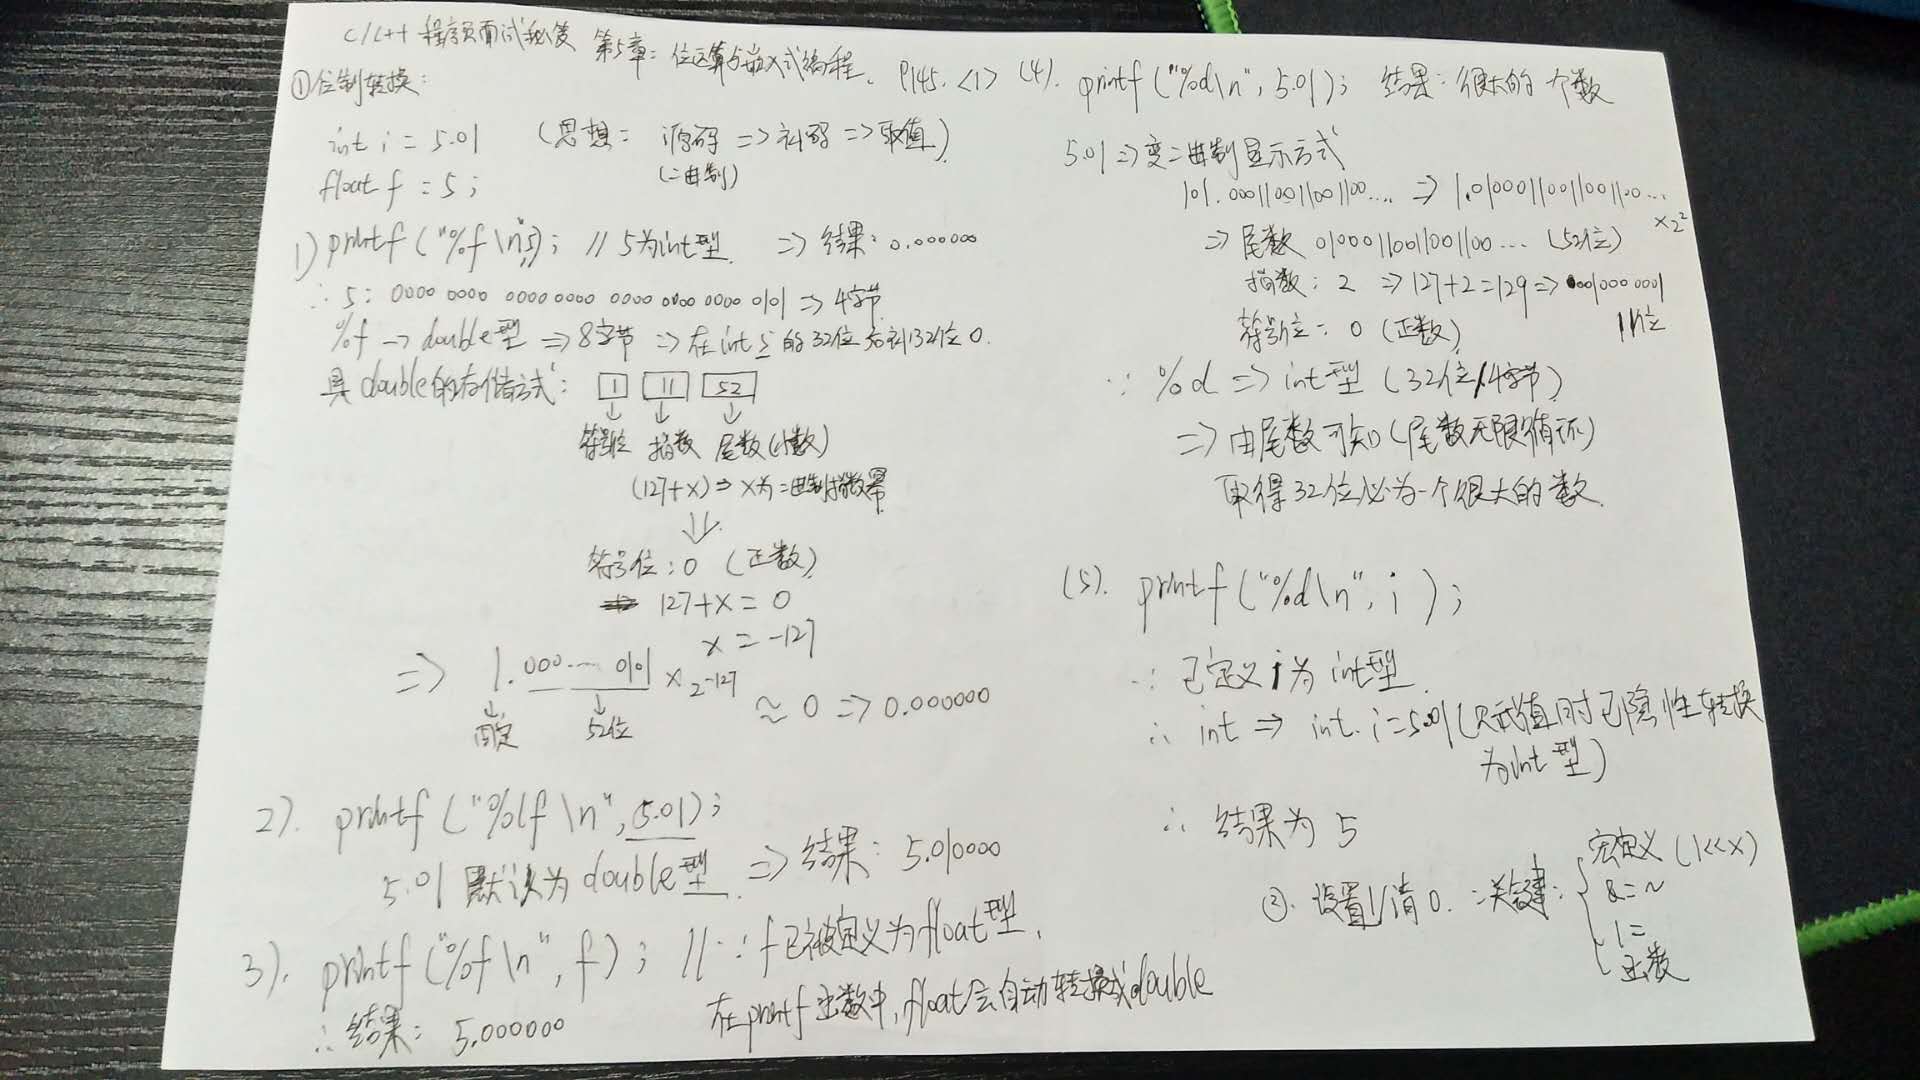 C/C++ 程序员面试秘笈 第5章：位运算与嵌入式编程. P145. <1>
①位制转换：
int i = 5.01 (思想： 源码 => 补码 => 取值)
(二进制)
float f = 5;
1) printf ("%f \n", 5); // 5为int型. => 结果：0.000000
∴ 5: 0000 0000 0000 0000 0000 0000 0000 0101 => 4字节
%f -> double型 => 8字节 => 在int 5的32位后补32位0.
具double的存储方式： 1 11 52
符号位 指数 尾数(小数)
(127+x) => x为二进制指数幂
符号位：0 (正数)
127+x = 0
x = -127
=> 1.000… 0101 × 2-127 ≈ 0 => 0.000000
固定 52位
2). printf ("%lf \n", 5.01);
5.01 默认为double型. => 结果：5.010000
3). printf ("%f \n", f); // ∵ f已被定义为float型.
在printf函数中, float会自动转换成double
∴ 结果： 5.000000
(4). printf ("%d\n", 5.01); 结果：很大的一个数
5.01 => 变二进制显示方式
101.0001100110011 00.... => 1.010001100110011 00... ×2²
=> 尾数 010001100110011 00... (52位)
指数：2 => 127+2=129 => 00010000001
11位
符号位：0 (正数)
∵ %d => int型 (32位/4字节)
=> 由尾数可知 (尾数无限循环)
取得32位必为一个很大的数.
(5). printf ("%d\n", i);
∵ 已定义i为int型.
∴ int => int. i=5.01 (只赋值时已隐性转换
为int型)
∴ 结果为 5
②. 设置1/清0. 关键：
宏定义 (1<<x)
&= ~
|=
函数